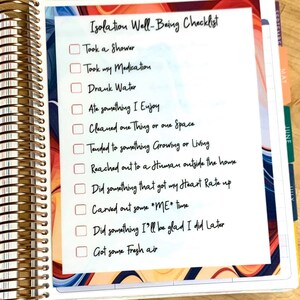 Isolation Well-Being Checklist
Took a Shower
Took my Medication
Drank Water
Ate something I Enjoy
Cleaned one Thing or one Space
Tended to something Growing or Living
Reached out to a Human outside the home
Did something that got my Heart Rate up
Carved out some *ME* time
Did something I'll be glad I did Later
Got some Fresh air
JUNE